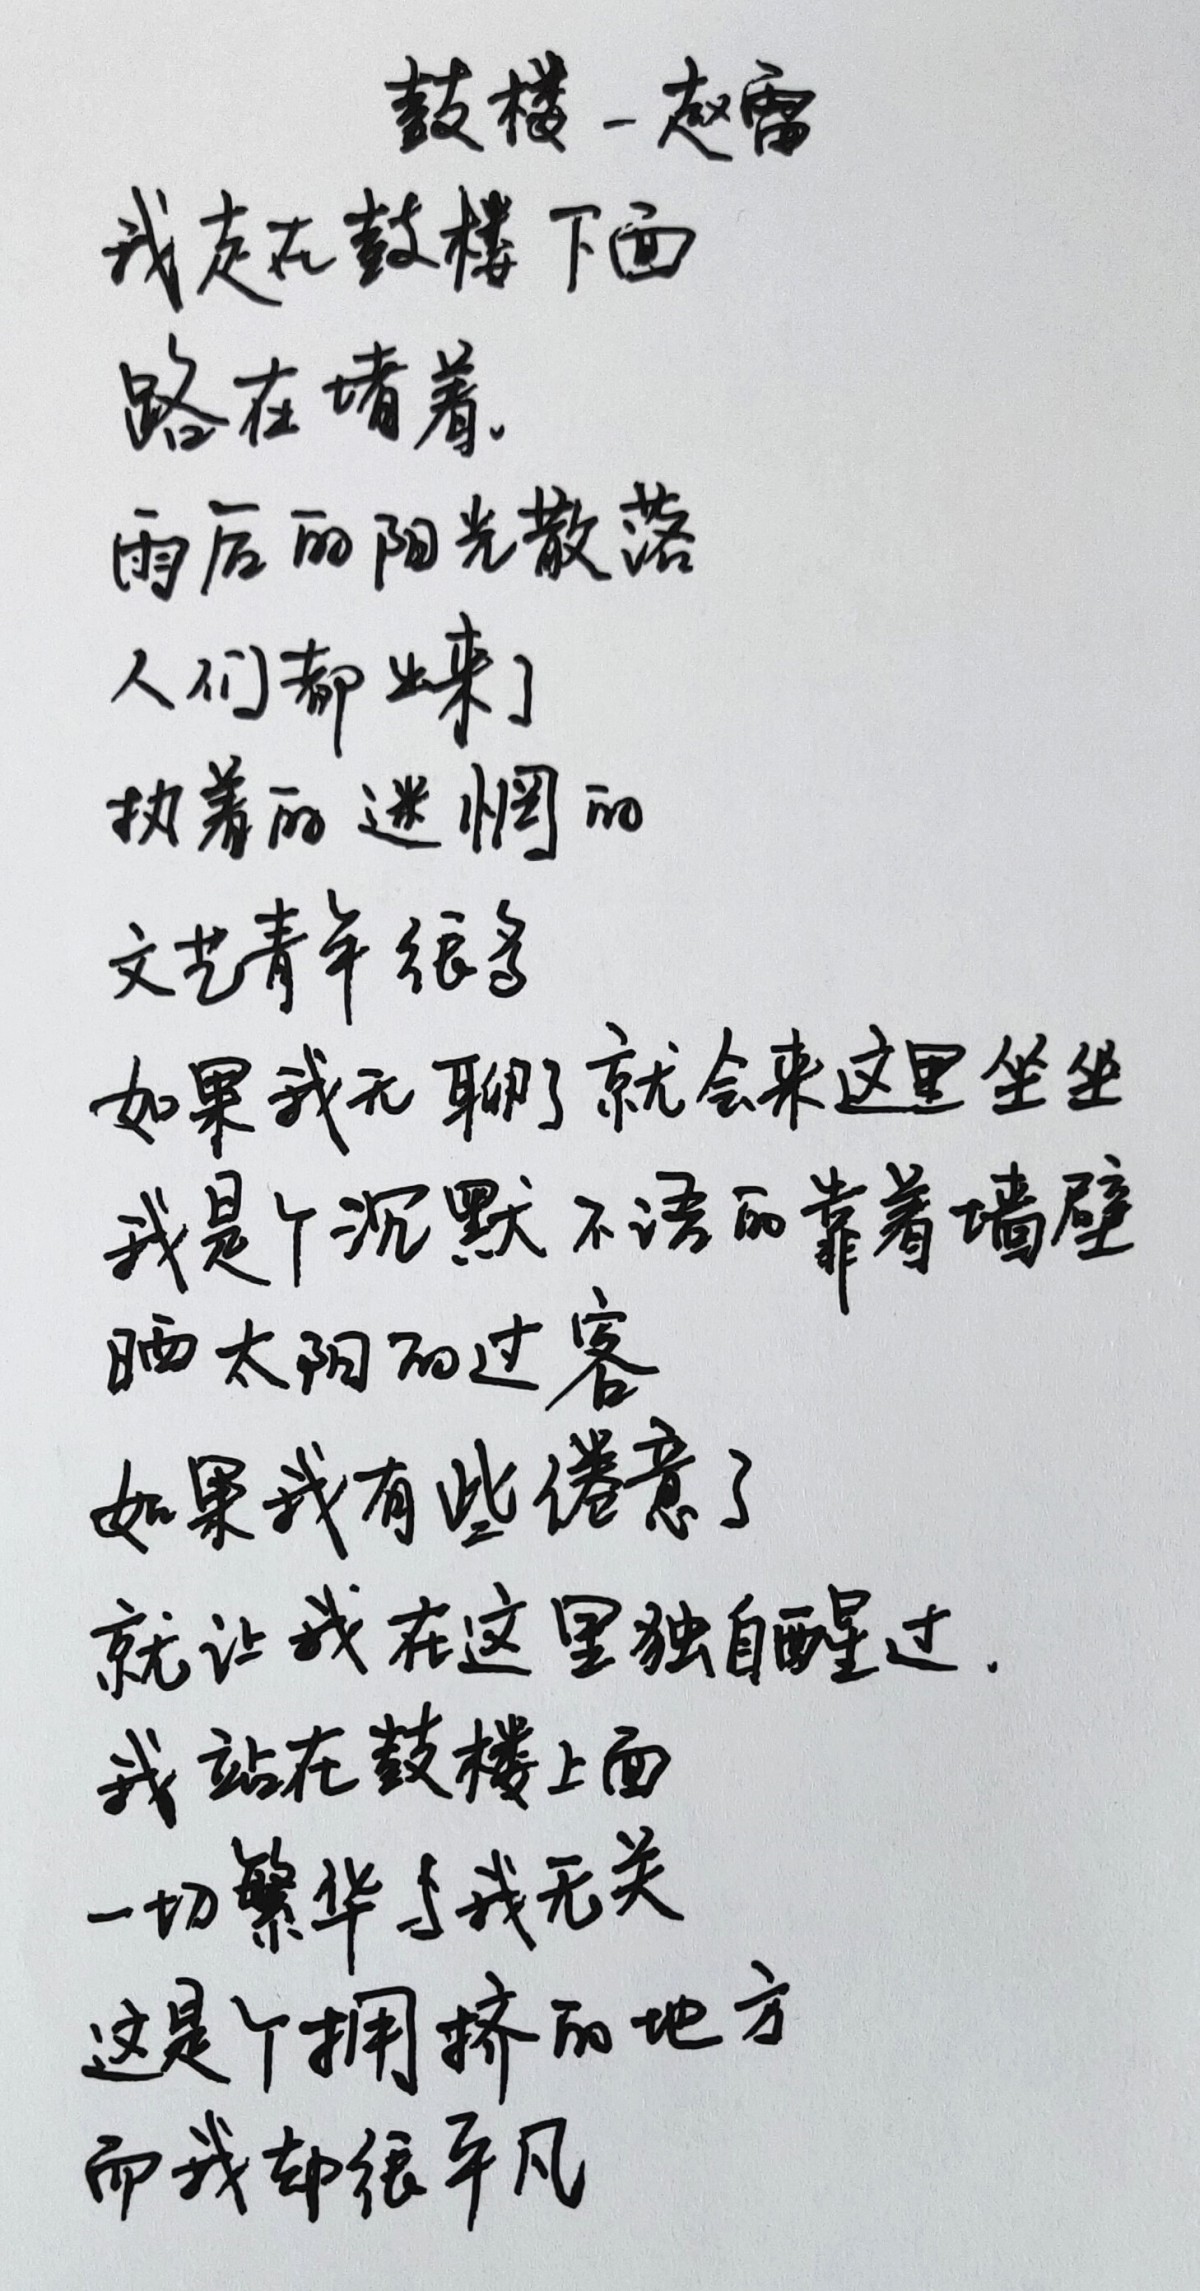 鼓楼-赵雷
我走在鼓楼下面
路在堵着.
雨后的阳光散落
人们都出来了
执着的迷惘的
文艺青年很多
如果我无聊了就会来这里坐坐
我是个沉默不语的靠着墙壁
晒太阳的过客
如果我有些倦意了
就让我在这里独自醒过.
我站在鼓楼上面
一切繁华与我无关
这是个拥挤的地方
而我却很平凡